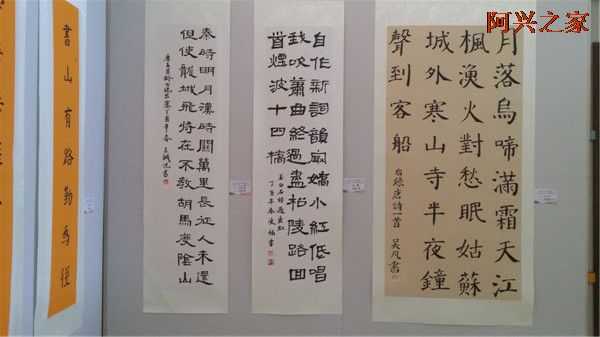 阿兴之家
月落烏啼滿霜天江
楓漁火對愁眠姑蘇
城外寒山寺半夜鐘
聲到客船
右錄唐詩一首
自作新詞韻最嬌小紅低唱
我吹蕭曲終過盡松陵路回
首煙波十四橋
秦時明月漢時關萬里長征人未還
但使龍城飛將在不教胡馬度陰山
書山有路勤為徑